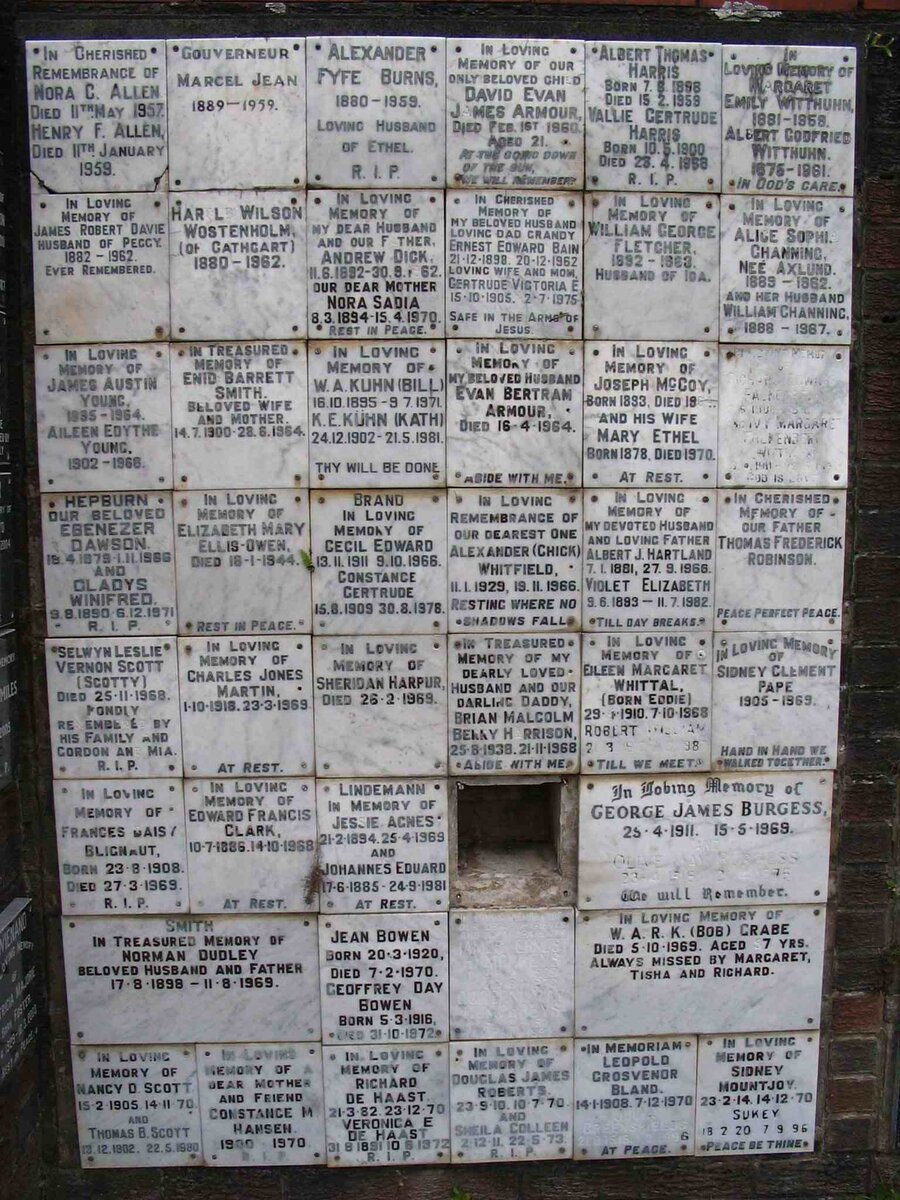 IN CHERISHED
REMEMBRANCE OF
NORA C. ALLEN
DIED 11TH MAY 1957.
HENRY F. ALLEN,
DIED 11TH JANUARY
1959.
GOUVERNEUR
MARCEL JEAN
1889-1959.
ALEXANDER
FYFE BURNS,
1880-1959.
LOVING HUSBAND
OF ETHEL.
R. I. P.
IN LOVING
MEMORY OF OUR
ONLY BELOVED CHILD
DAVID EVAN
JAMES ARMOUR,
DIED FEB. 1ST 1960.
AGED 21.
AT THE GOING DOWN
OF THE SUN,
WE WILL REMEMBER
ALBERT THOMAS
HARRIS
BORN 7. 8. 1898
DIED 15. 2. 1959
VALLIE GERTRUDE
HARRIS
BORN 10. 5. 1900
DIED 23. 4. 1958
R. I. P.
IN
LOVING MEMORY OF
MARGARET
EMILY WITTHUHN,
1881-1958.
ALBERT GODFRIED
WITTHUHN.
1875-1961.
IN GOD'S CARE.
IN LOVING
MEMORY OF
JAMES ROBERT DAVIE
HUSBAND OF PEGGY.
1882 - 1962.
EVER REMEMBERED.
WILSON
WOSTENHOLM,
(OF CATHCART)
1880-1962.
IN LOVING
MEMORY OF
MY DEAR HUSBAND
AND OUR F THER,
ANDREW DICK,
11.6.1892-30.9. 62.
OUR DEAR MOTHER
NORA SADIA
8.3.1894-15.4.1970.
REST IN PEACE.
IN CHERISHED
MEMORY OF
MY BELOVED HUSBAND
LOVING DAD GRANDY
ERNEST EDWARD BAIN
21·12·1898. 20·12·1962
LOVING WIFE AND MOM,
GERTRUDE VICTORIA E
15·10·1905. 2·7·1975
SAFE IN THE ARMS OF
JESUS.
IN LOVING
MEMORY OF
WILLIAM GEORGE
FLETCHER,
1892 - 1963.
HUSBAND OF IDA.
IN LOVING
MEMORY OF
ALICE SOPHI
CHANNING,
NEÉ AXLUND.
1889 - 1962.
AND HER HUSBAND
WILLIAM CHANNING,
1888 - 1967.
IN LOVING
MEMORY OF
JAMES AUSTIN
YOUNG,
1895-1964.
AILEEN EDYTHE
YOUNG,
1902-1966.
IN TREASURED
MEMORY OF
ENID BARRETT
SMITH.
BELOVED WIFE
AND MOTHER.
14.7.1900-28.6.1964.
IN LOVING
MEMORY OF
W.A. KUHN (BILL)
16.10.1895 - 9.7.1971.
K.E. KÜHN (KATH)
24.12.1902 - 21.5.1981.
THY WILL BE DONE
IN LOVING
MEMORY OF
MY BELOVED HUSBAND
EVAN BERTRAM
ARMOUR,
DIED 16·4·1964.
ABIDE WITH ME.
IN LOVING
MEMORY OF
JOSEPH McCOY,
BORN 1893, DIED 19
AND HIS WIFE
MARY ETHEL
BORN 1878, DIED 1970.
AT REST.
MARGARE
HEPBURN
OUR BELOVED
EBENEZER
DAWSON.
18.4.1879-1.11.1966
AND
GLADYS
WINIFRED.
9.8.1890 6.12.1971
R. I. P.
IN LOVING
MEMORY OF
ELIZABETH MARY
ELLIS-OWEN,
DIED 18-1-1944.
REST IN PEACE.
BRAND
IN LOVING
MEMORY OF
CECIL EDWARD
13.11.1911 9.10.1966.
CONSTANCE
GERTRUDE
15.8.1909 30.8.1978.
IN LOVING
REMEMBRANCE OF
OUR DEAREST ONE
ALEXANDER (CHICK)
WHITFIELD,
11.1.1929, 19.11.1966.
RESTING WHERE NO
SHADOWS FALL
IN LOVING
MEMORY OF
MY DEVOTED HUSBAND
AND LOVING FATHER
ALBERT J. HARTLAND
7. 1. 1881, 27. 9. 1966.
VIOLET ELIZABETH
9. 6. 1893 - 11. 7. 1982.
TILL DAY BREAKS.
IN CHERISHED
MEMORY OF
OUR FATHER
THOMAS FREDERICK
ROBINSON.
PEACE PERFECT PEACE.
SELWYN LESLIE
VERNON SCOTT
(SCOTTY)
DIED 25·11·1968.
FONDLY
RE EMBE E BY
HIS FAMILY AND
GORDON AND MIA.
R. I. P.
IN LOVING
MEMORY OF
CHARLES JONES
MARTIN,
1·10·1918. 23·3·1969
AT REST.
IN LOVING
MEMORY OF
SHERIDAN HARPUR,
DIED 26·2·1969.
IN TREASURED
MEMORY OF MY
DEARLY LOVED
HUSBAND AND OUR
DARLING DADDY,
BRIAN MALCOLM
H RRISON,
25·8·1938. 21·11·1968
ABIDE WITH ME
IN LOVING
MEMORY OF
EILEEN MARGARET
WHITTAL,
(BORN EDDIE)
29· 1910. 7·10·1968
ROBERT WILLIAM
TILL WE MEET
IN LOVING MEMORY
OF
SIDNEY CLEMENT
PAPE
1905-1969.
HAND IN HAND WE
WALKED TOGETHER.
IN LOVING
MEMORY OF
FRANCES DAISY
BLIGNAUT,
BORN 23·8·1908.
DIED 27·3·1969.
R. I. P.
IN LOVING
MEMORY OF
EDWARD FRANCIS
CLARK,
10·7·1886. 14·10·1968
AT REST.
LINDEMANN
IN MEMORY OF
JESSIE AGNES
21·2·1894. 25·4·1969
AND
JOHANNES EDUARD
17·6·1885 - 24·9·1981
AT REST.
In Loving Memory of
GEORGE JAMES BURGESS,
25·4·1911. 15·5·1969.
We will Remember.
SMITH
IN TREASURED MEMORY OF
NORMAN DUDLEY
BELOVED HUSBAND AND FATHER
17·8·1898 - 11·8·1969.
JEAN BOWEN
BORN 20·3·1920,
DIED 7·2·1970.
GEOFFREY DAY
BOWEN
BORN 5·3·1916,
DIED 31·10·1972
IN LOVING MEMORY OF
W. A. R. K. (BOB) CRABE
DIED 5·10·1969. AGED 7 YRS.
ALWAYS MISSED BY MARGARET,
TISHA AND RICHARD.
IN LOVING
MEMORY OF
NANCY D. SCOTT
15·2·1905. 14·11·70
AND
THOMAS B. SCOTT
13.12.1902. 22.5.1980
IN LOVING
MEMORY OF A
DEAR MOTHER
AND FRIEND
CONSTANCE M
HANSEN.
1900 1970
R. I. P.
IN LOVING
MEMORY OF
RICHARD
DE HAAST.
21·3·82. 23·12·70
VERONICA E
DE HAAST
R. I. P.
IN LOVING
MEMORY OF
DOUGLAS JAMES
ROBERTS.
23·9·10. 10·7·70
AND
SHEILA COLLEEN
2·12·11. 22·5·73.
R. I. P.
IN MEMORIAM
LEOPOLD
GROSVENOR
BLAND.
14·1·1908. 7·12·1970
AT PEACE.
IN LOVING
MEMORY OF
SIDNEY
MOUNTJOY.
23·2·14. 14·12·70
SUKEY
18 2 20 7 9 96
PEACE BE THINE